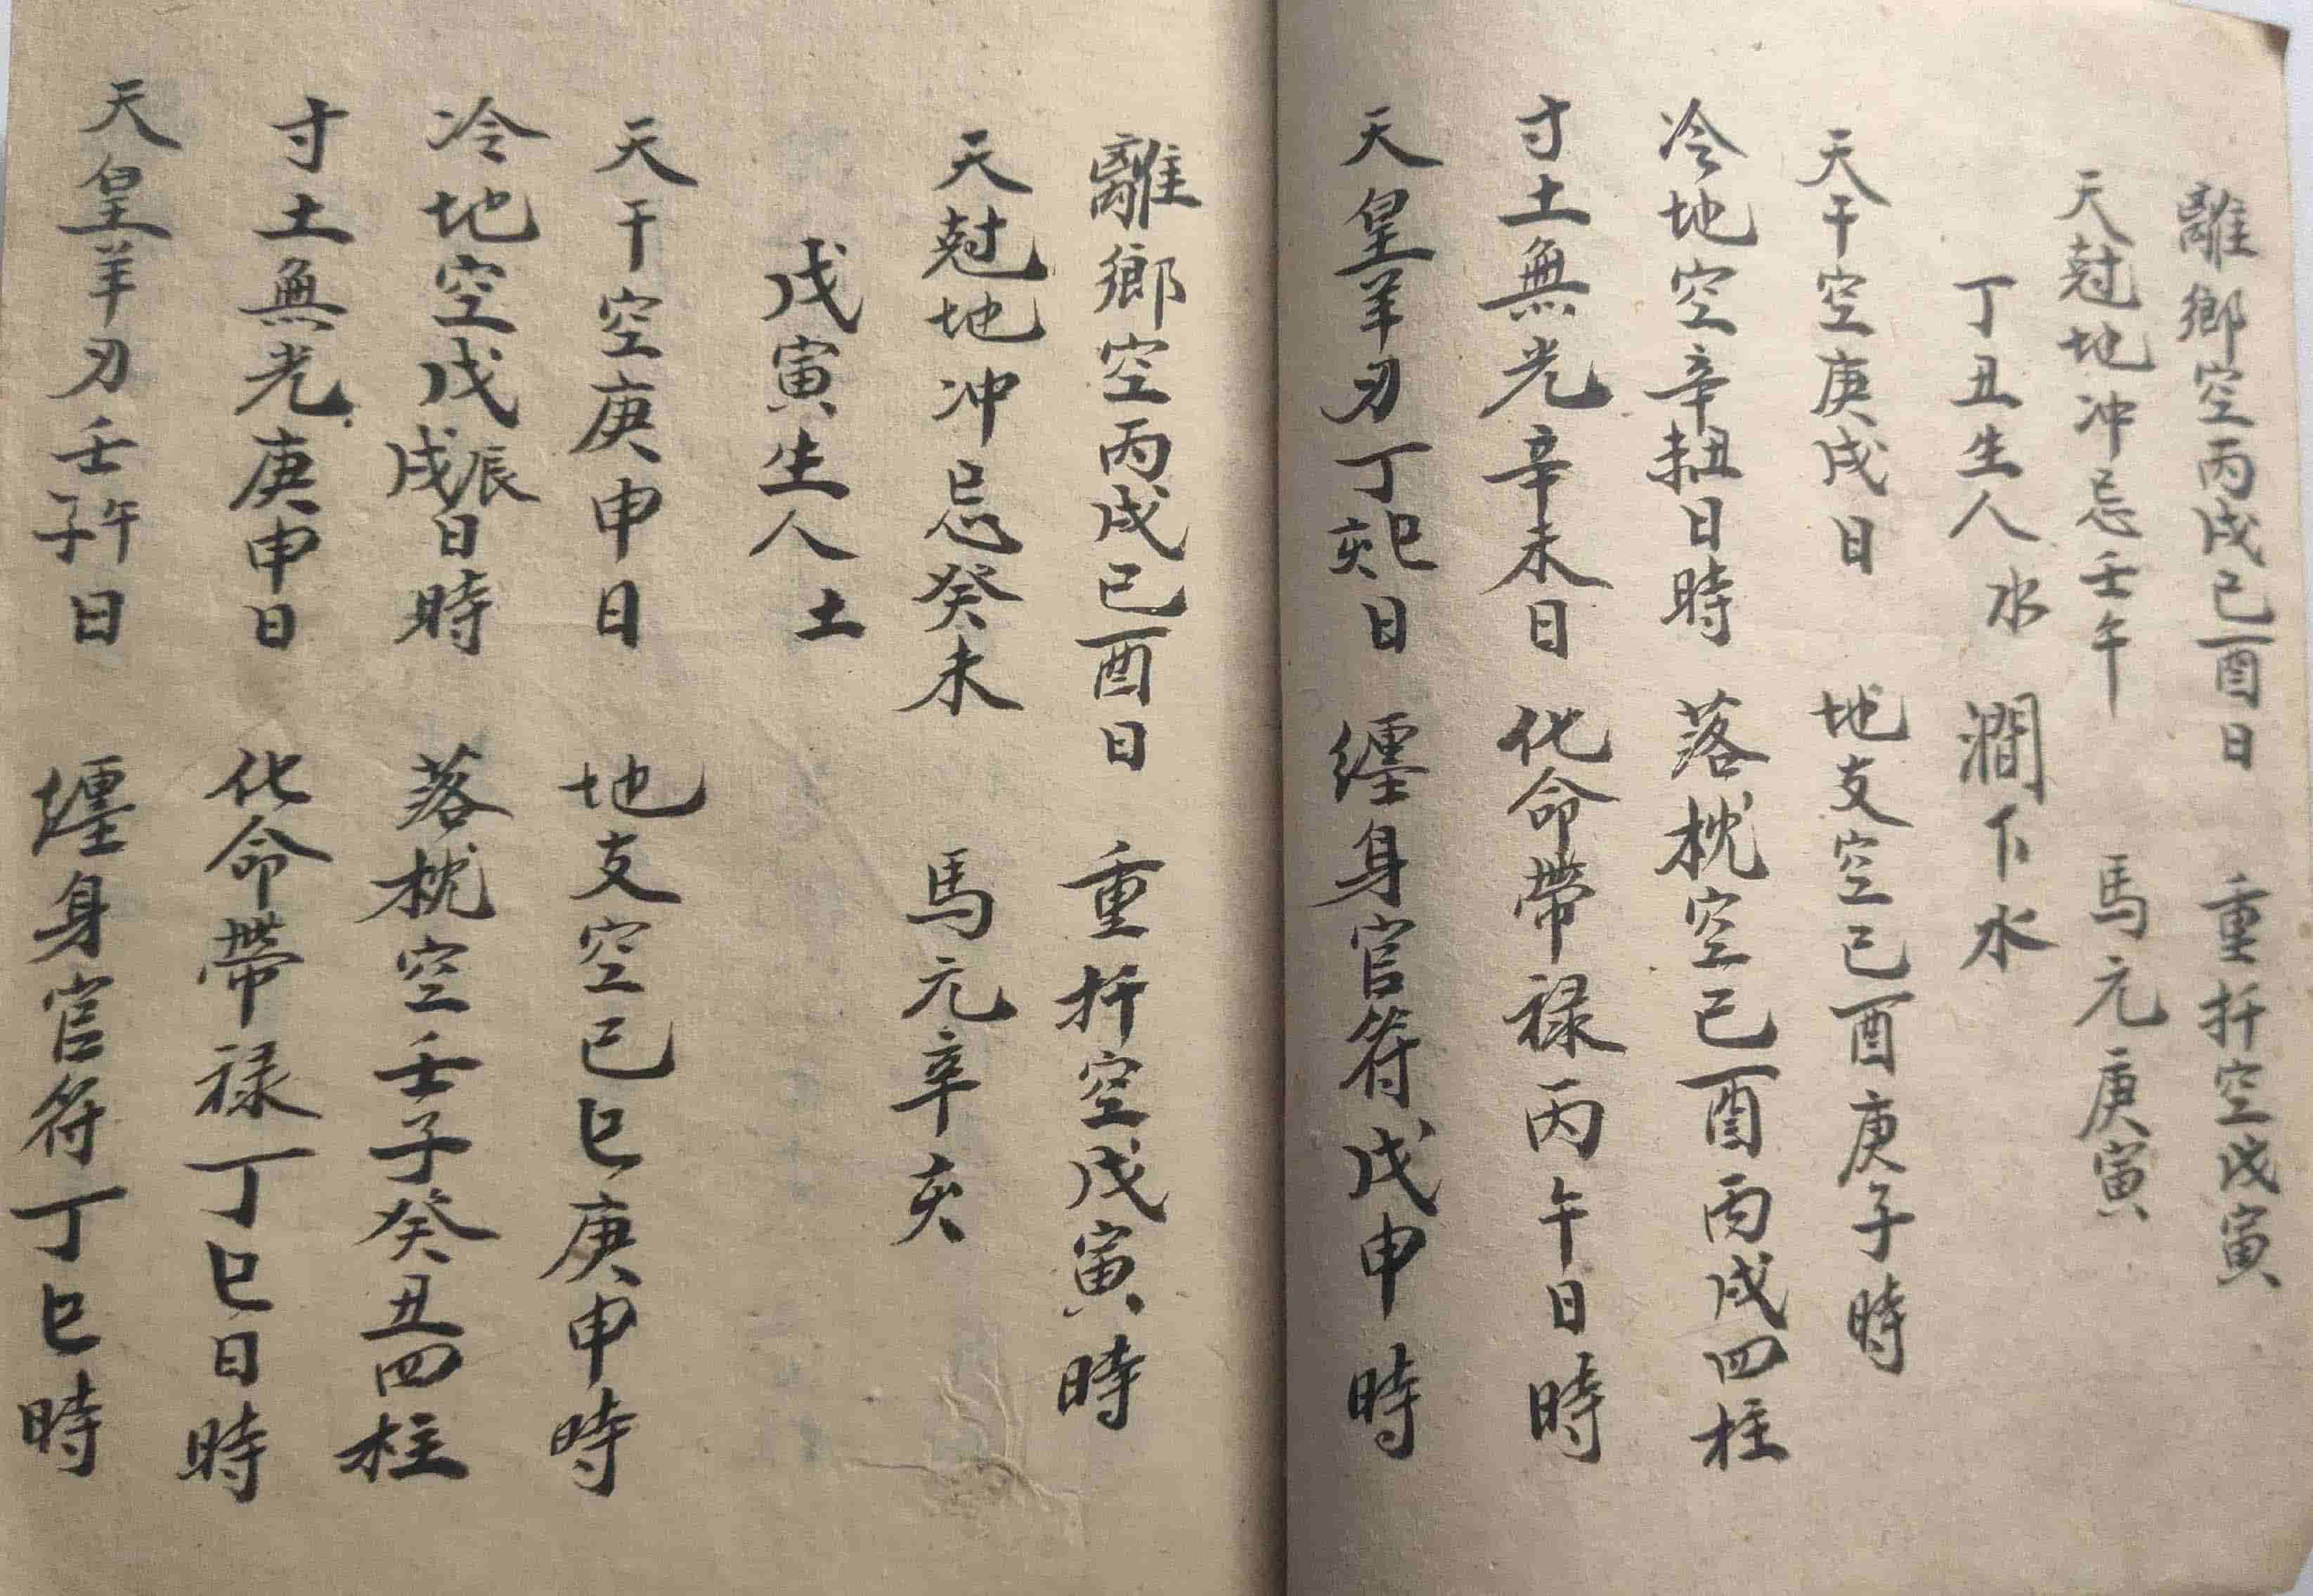 離鄉空丙戌己酉日 重扦空戊寅
天尅地冲忌壬午 馬元庚寅
丁丑生人水 澗下水
天干空庚戌日 地支空己酉庚子時
冷地空辛未丑日時 落枕空己酉丙戌四柱
寸土無光辛未日 化命帶禄丙午日時
天皇羊刃丁巳亥日 纏身官符戊申時
離鄉空丙戌己酉日 重扦空戊寅時
天尅地冲忌癸未 馬元辛亥
戊寅生人土
天干空庚申日 地支空己巳庚申時
冷地空戊辰戌日時 落枕空壬子癸丑四柱
寸土無光庚申日 化命帶禄丁巳日時
天皇羊刃壬午子日 纏身官符丁巳時